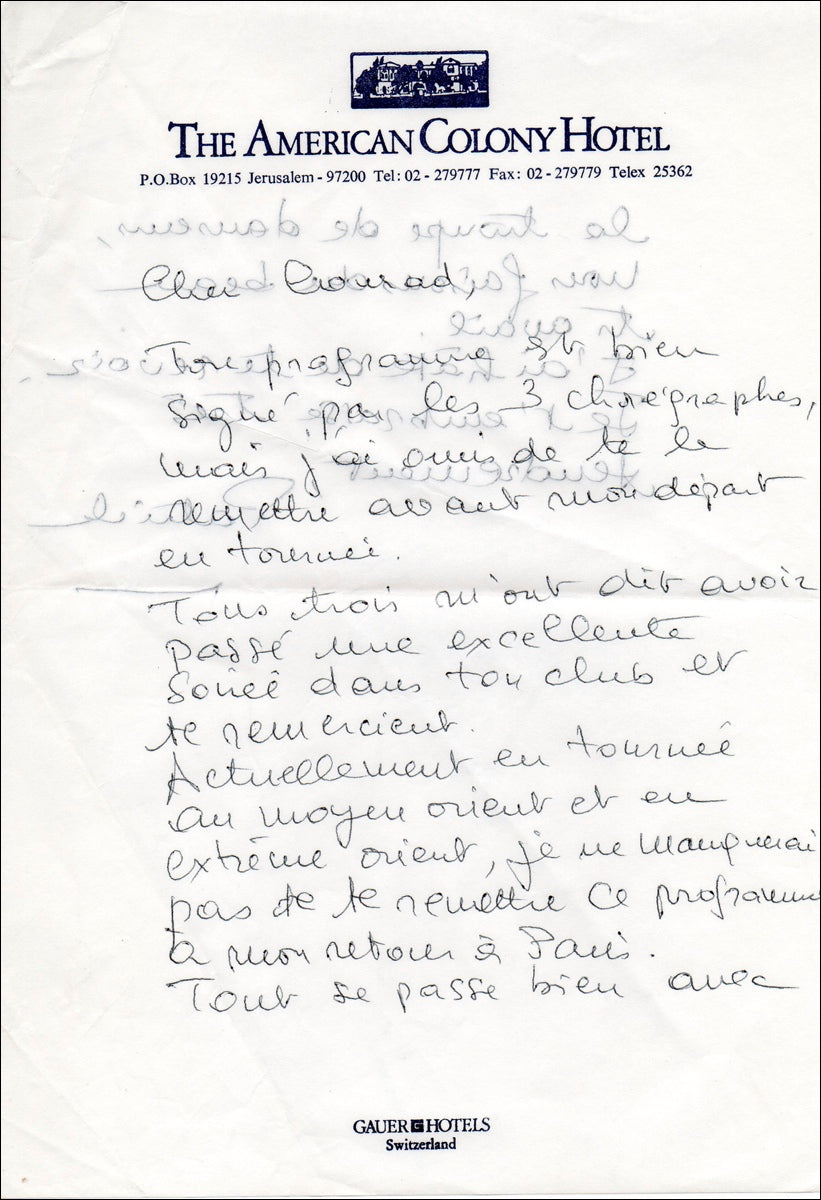 THE AMERICAN COLONY HOTEL
P.O.Box 19215 Jerusalem - 97200 Tel: 02 - 279777 Fax: 02 - 279779 Telex 25362
la troupe de danseurs,
Cher Conrad,
nous faisons du beau
travail
Ton programme est bien
signé par les 3 chorégraphes,
mais j'ai omis de te le
remettre avant mon départ
en tournée.
Tous trois m'ont dit avoir
passé une excellente
soirée dans ton club et
te remercient.
Actuellement en tournée
au moyen orient et en
extrême orient, je ne manquerai
pas de te remettre ce programme
à mon retour à Paris.
Tout se passe bien avec
GAUER HOTELS
Switzerland